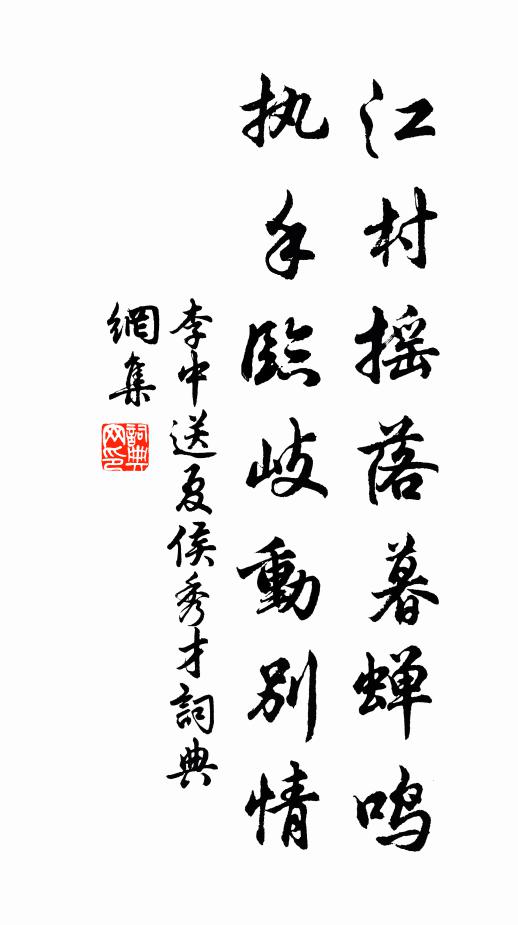 江村摇落暮蝉鸣
执手臨岐動别情
李中送夏侯秀才詞典
網集
詞典
网印